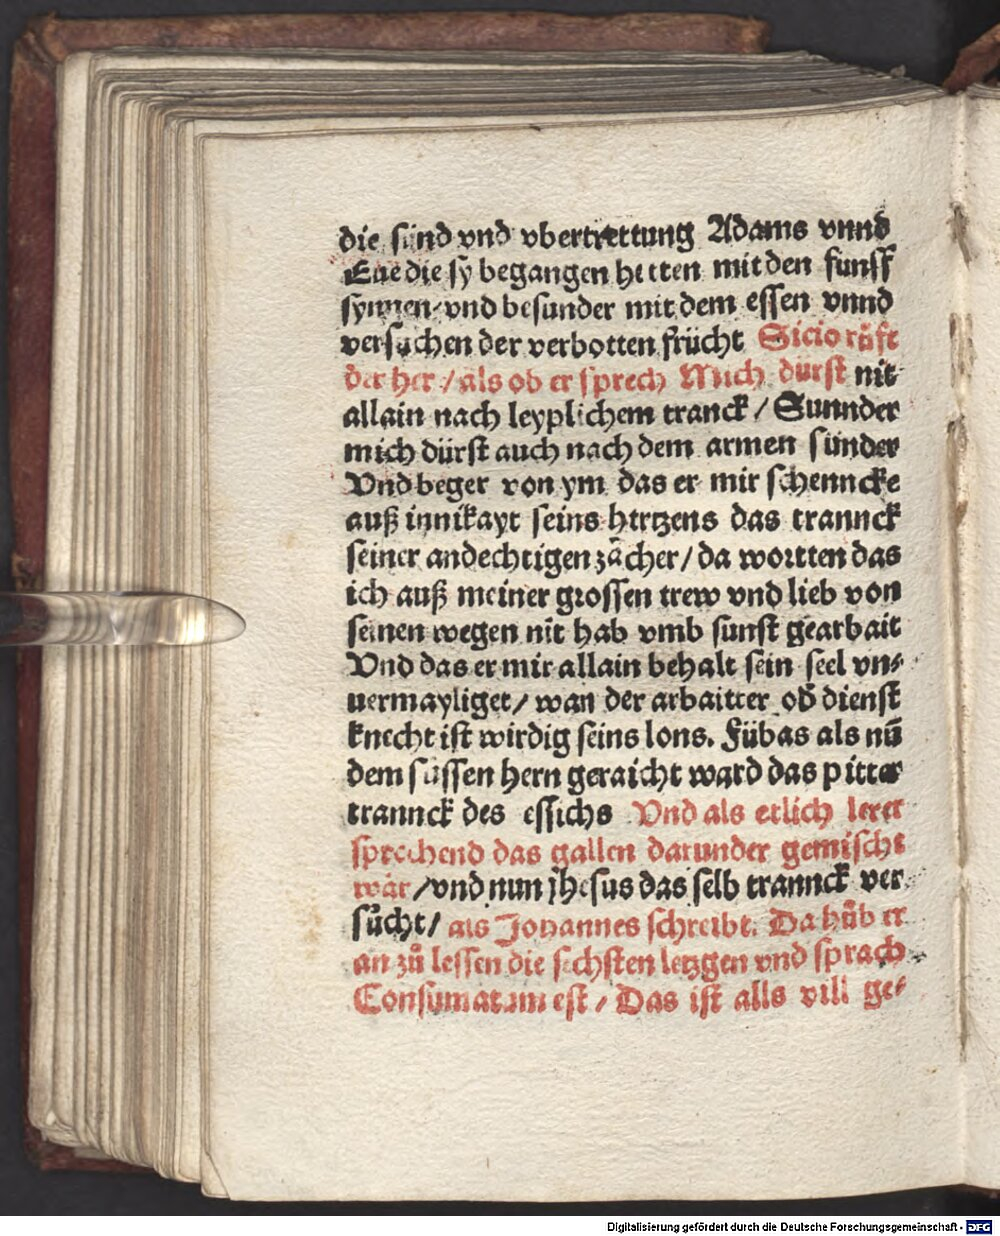 die sünd vnd vbertrettung Adams vnnd
Eue die sy begangen hetten mit den funff
synnen/ vnd besunder mit dem essen vnnd
versuchen der verbotten frücht Sicio růft
der her / als ob er sprech Mich dürst nit
allain nach leyplichem tranck / Sunnder
mich dürst auch nach dem armen sünder
Vnd beger von ym das er mir schenncke
auß innikayt seins hertzens das tranck
seiner andechtigen zächer / da wortten das
ich auß meiner grossen trew vnd lieb von
seinen wegen nit hab vmb sunst gearbait
Vnd das er mir allain behalt sein seel vn⸗
uermayliget / wan der arbaitter od dienst
knecht ist wirdig seins lons. Fübas als nū
dem süssen hern geraicht ward das pitter
tranck des essichs Vnd als etlich lerer
sprechend das gallen darunder gemischt
wär / vnd nun jhesus das selb tranck ver
sůcht / als Johannes schreibt. Da hůb er
an zů lessen die sechsten letzgen vnd sprach
Consumatum est / Das ist alls vill ge⸗
Digitalisierung gefördert durch die Deutsche Forschungsgemeinschaft - DFG